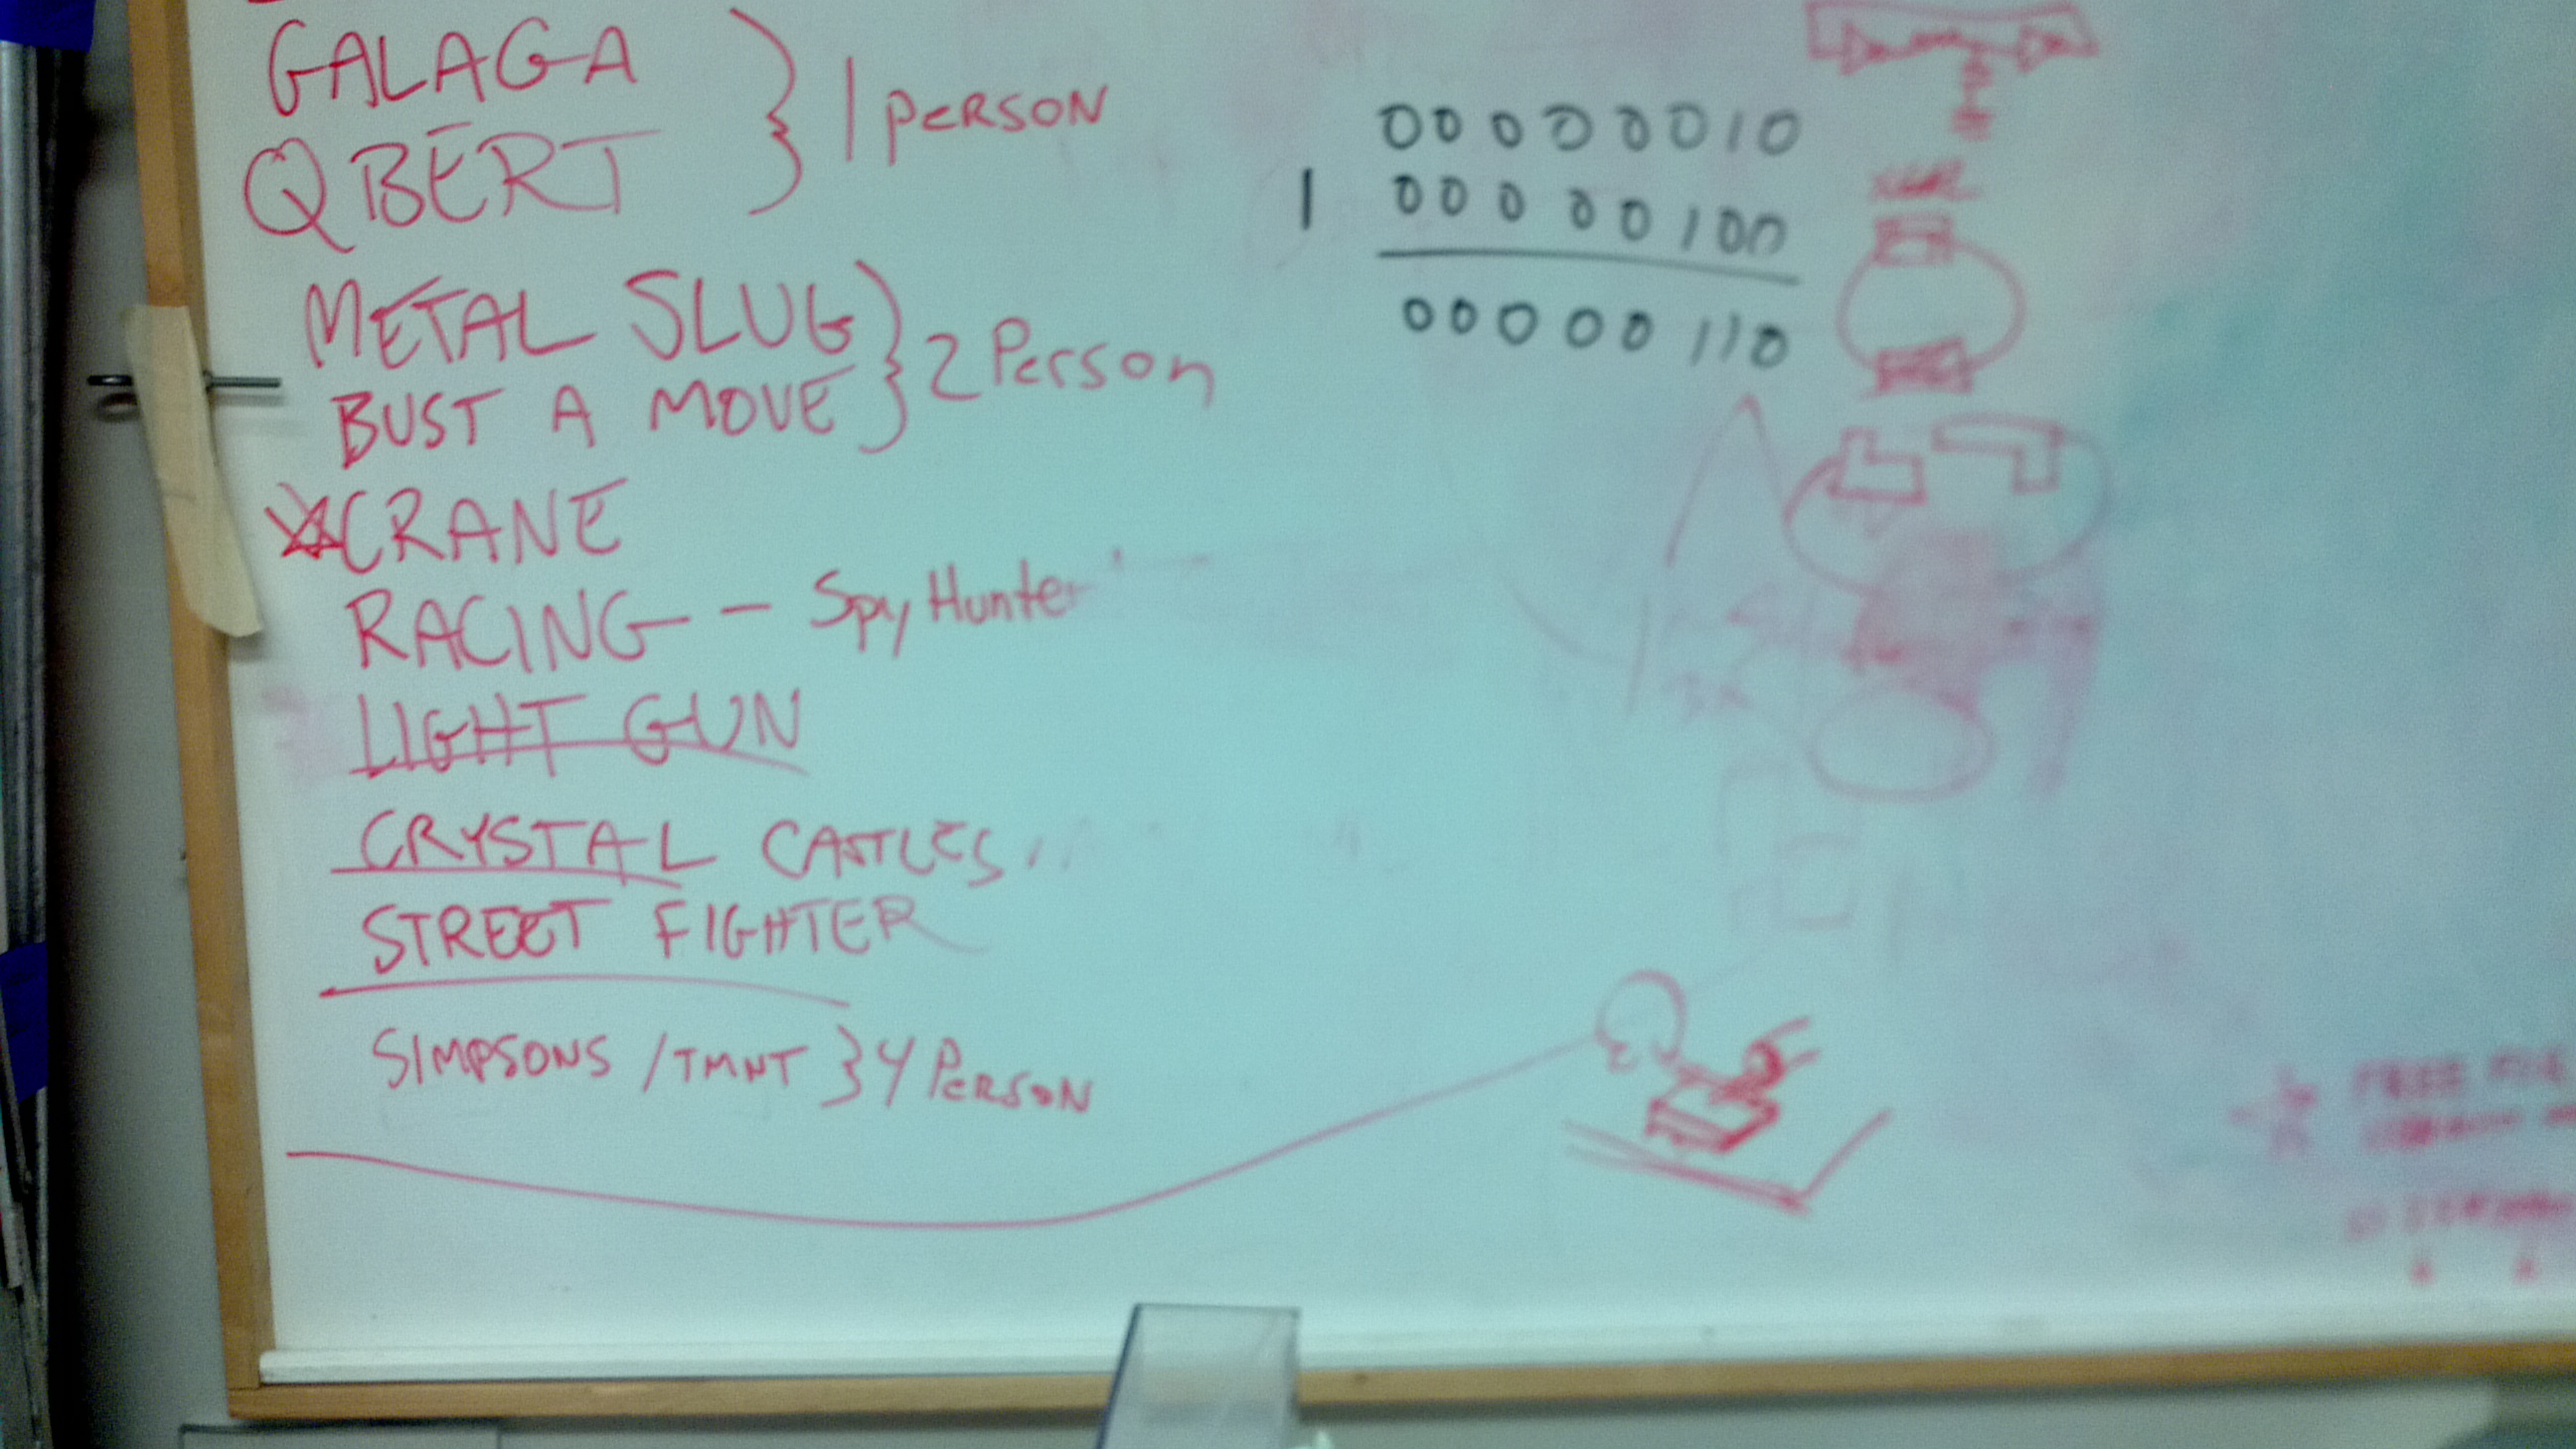 GALAGA
QBERT
} 1 PERSON
METAL SLUG
BUST A MOVE
} 2 Person
CRANE
RACING -- Spy Hunter
LIGHT GUN
CRYSTAL CASTLES
STREET FIGHTER
SIMPSONS / TMNT } 4 PERSON
00000010
1 00000100
00000110
FREE